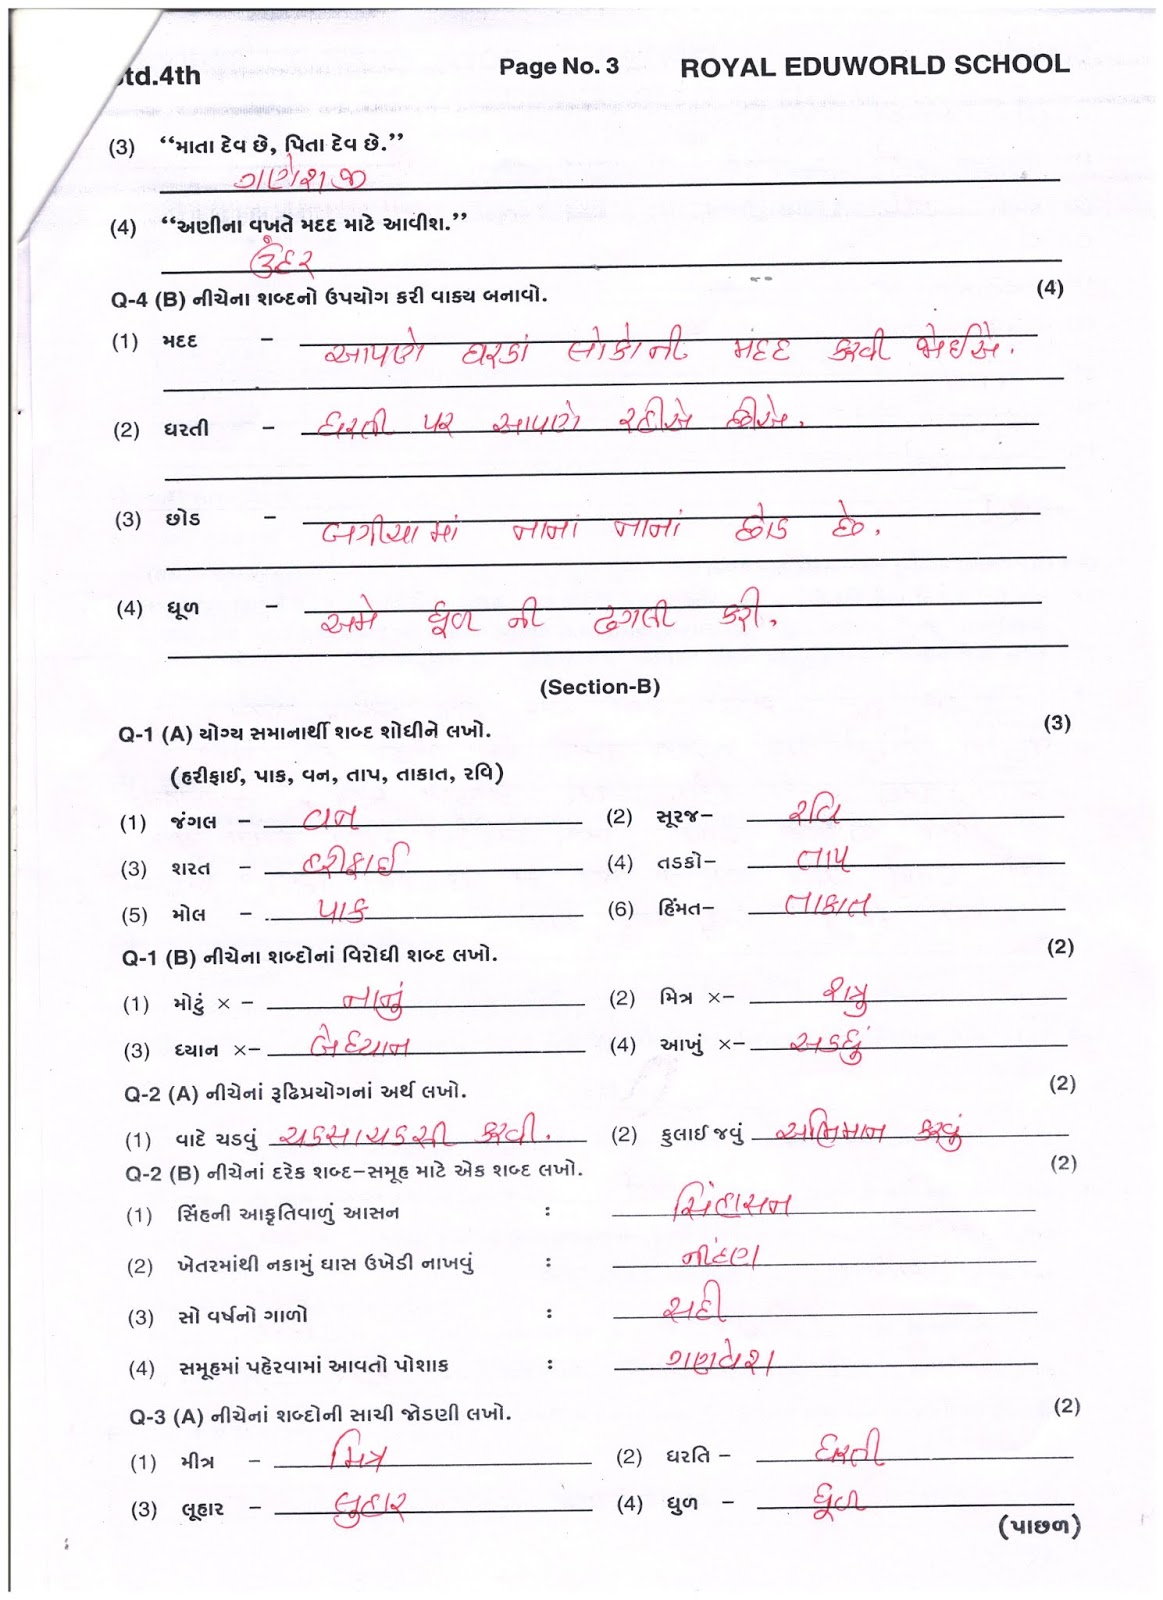 td.4th Page No. 3 ROYAL EDUWORLD SCHOOL
(3) “માતા દેવ છે, પિતા દેવ છે.”
ગણેશજી
(4) “અણીના વખતે મદદ માટે આવીશ.”
ઉંદર
Q-4 (B) નીચેના શબ્દનો ઉપયોગ કરી વાક્ય બનાવો. (4)
(1) મદદ – આપણે ઘરડાં લોકોની મદદ કરવી જોઈએ.
(2) ધરતી – ધરતી પર આપણે રહીએ છીએ.
(3) છોડ – બગીચામાં નાનાં નાનાં છોડ છે.
(4) ધૂળ – અમે ધૂળ ની ઢગલી કરી.
(Section-B)
Q-1 (A) યોગ્ય સમાનાર્થી શબ્દ શોધીને લખો. (3)
(હરીફાઈ, પાક, વન, તાપ, તાકાત, રવિ)
(1) જંગલ – વન (2) સૂરજ– રવિ
(3) શરત – હરીફાઈ (4) તડકો– તાપ
(5) મોલ – પાક (6) હિંમત– તાકાત
Q-1 (B) નીચેના શબ્દોનાં વિરોધી શબ્દ લખો. (2)
(1) મોટું × – નાનું (2) મિત્ર ×– શત્રુ
(3) ધ્યાન ×– બેધ્યાન (4) આખું ×– અડધું
Q-2 (A) નીચેનાં રૂઢિપ્રયોગનાં અર્થ લખો. (2)
(1) વાદે ચડવું ચડસાચડસી કરવી. (2) ફુલાઈ જવું અભિમાન કરવું
Q-2 (B) નીચેનાં દરેક શબ્દ–સમૂહ માટે એક શબ્દ લખો. (2)
(1) સિંહની આકૃતિવાળું આસન : સિંહાસન
(2) ખેતરમાંથી નકામું ઘાસ ઉખેડી નાખવું : નીંદણ
(3) સો વર્ષનો ગાળો : સદી
(4) સમૂહમાં પહેરવામાં આવતો પોશાક : ગણવેશ
Q-3 (A) નીચેનાં શબ્દોની સાચી જોડણી લખો. (2)
(1) મીત્ર – મિત્ર (2) ધરતિ – ધરતી
(3) લૂહાર – લુહાર (4) ધુળ – ધૂળ
(પાછળ)